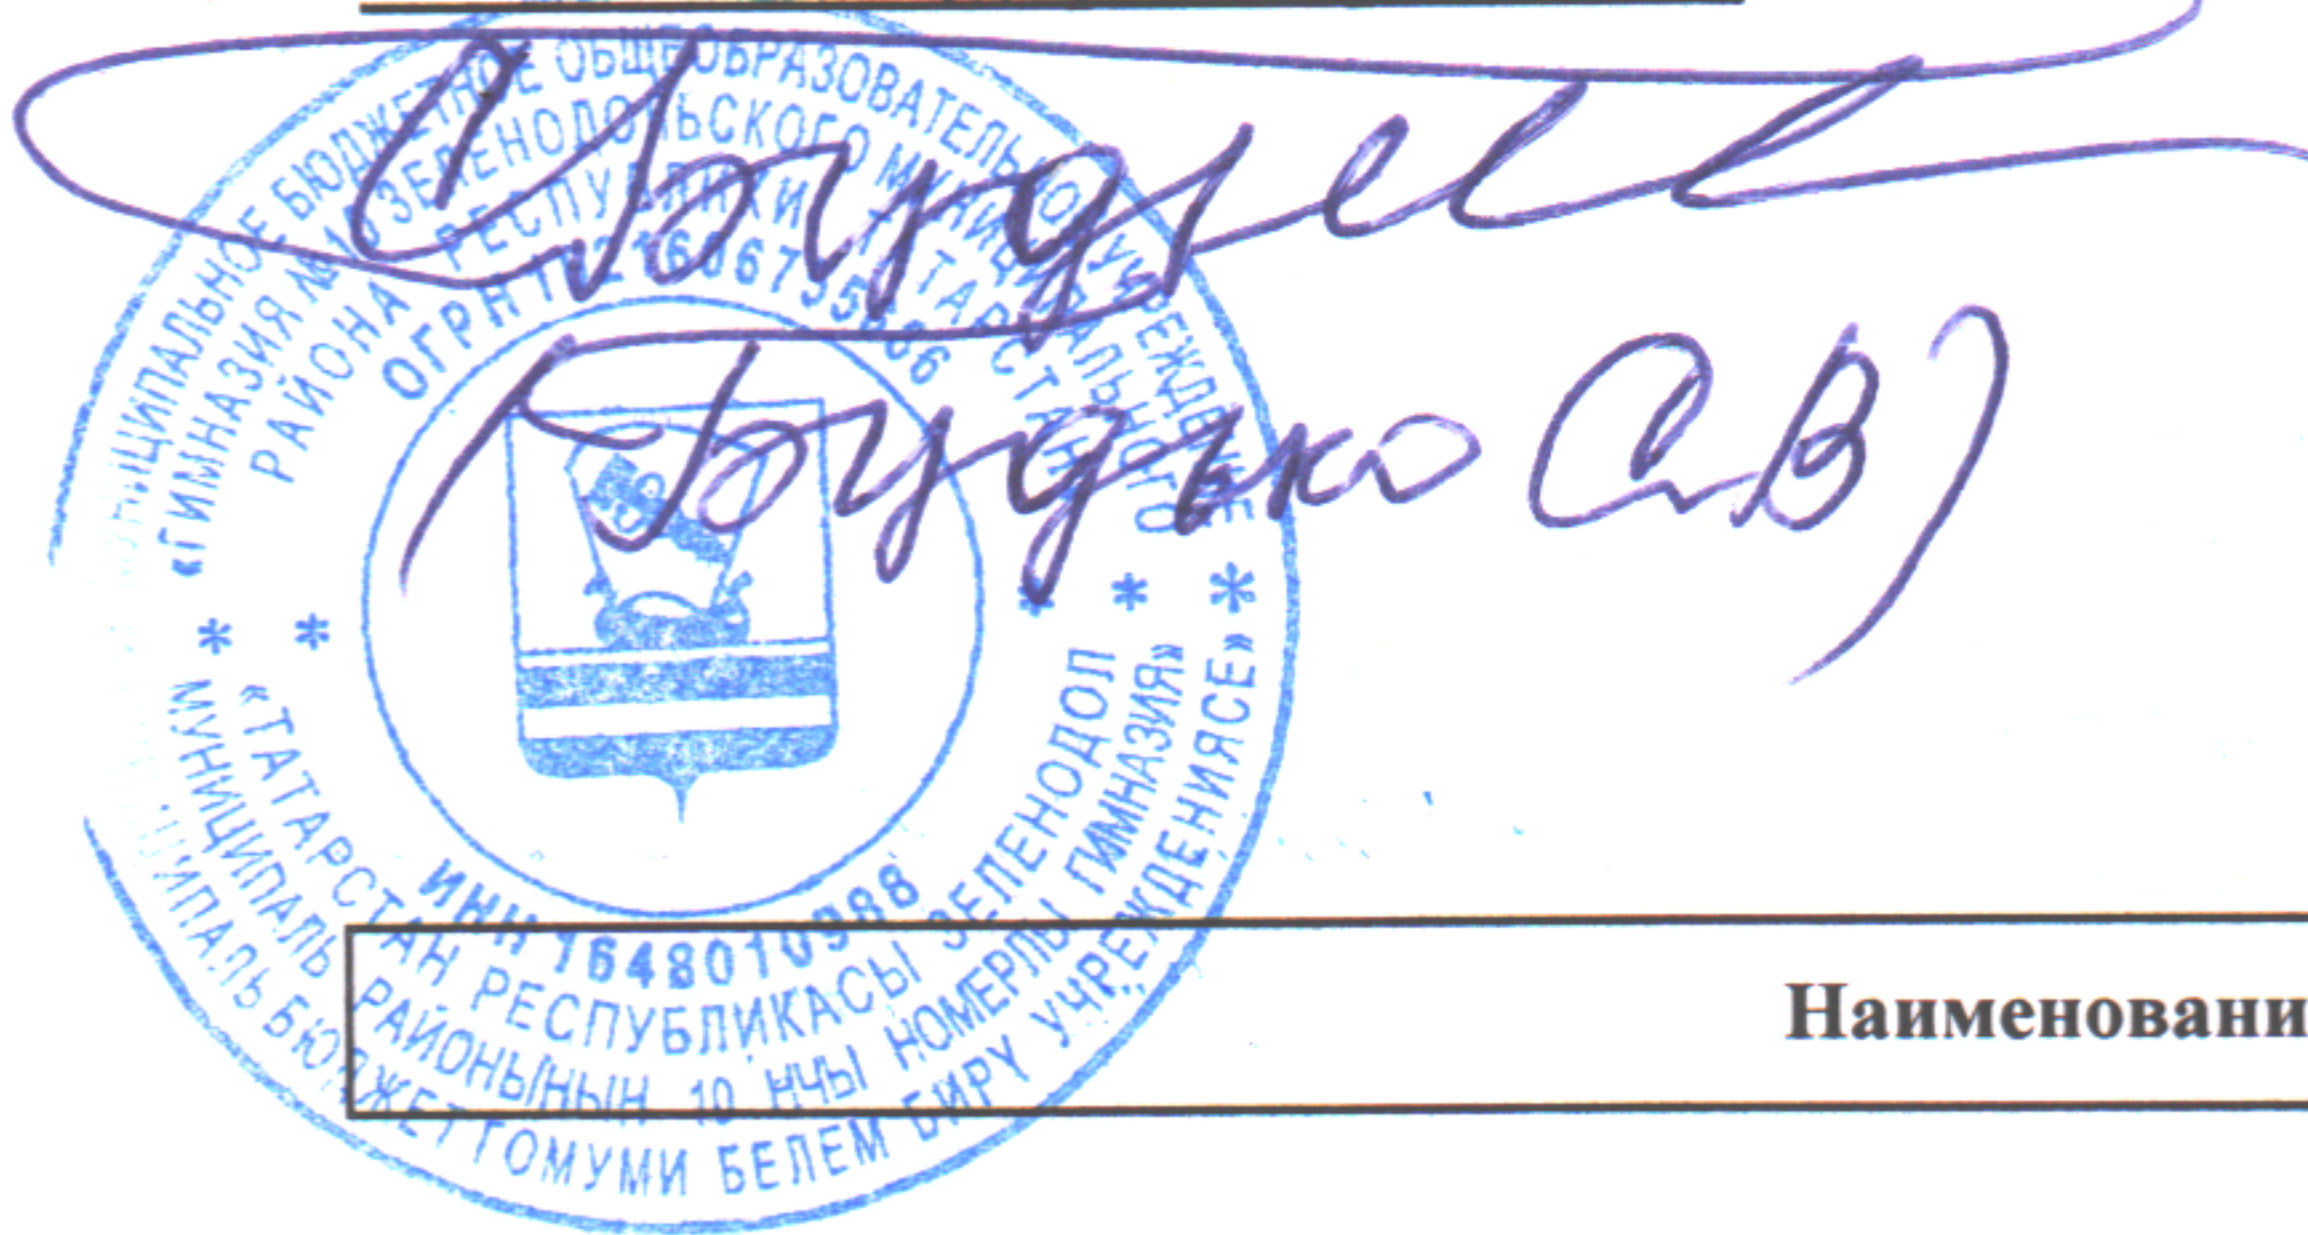 МУНИЦИПАЛЬНОЕ БЮДЖЕТНОЕ ОБЩЕОБРАЗОВАТЕЛЬНОЕ УЧРЕЖДЕНИЕ
«ГИМНАЗИЯ № 10 ЗЕЛЕНОДОЛЬСКОГО МУНИЦИПАЛЬНОГО
РАЙОНА РЕСПУБЛИКИ ТАТАРСТАН»
ОГРН
(Будько СВ)
ИНН 1648010988
«ТАТАРСТАН РЕСПУБЛИКАСЫ ЗЕЛЕНОДОЛ
МУНИЦИПАЛЬ РАЙОНЫНЫН 10 НЧЫ НОМЕРЛЫ ГИМНАЗИЯ»
МУНИЦИПАЛЬ БЮДЖЕТ ГОМУМИ БЕЛЕМ БИРҮ УЧРЕЖДЕНИЯСЕ»
Наименовани